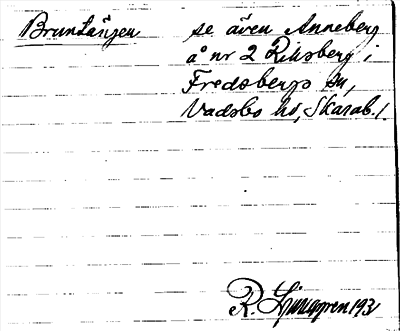 Brunlången se även Anneberg
å nr 2 Riksberg i
Fredsbergs sn,
Vadsbo hd, Skarab. l.
R. Ljunggren 193